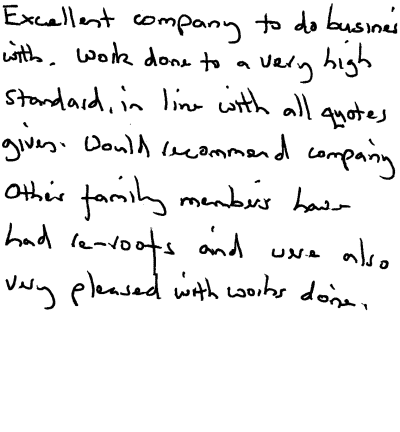 Excellent company to do busines
with. Work done to a very high
Standard, in line with all quotes
given. Would recommend company
Other family members have
had re-roofs and were also
very pleased with works done.